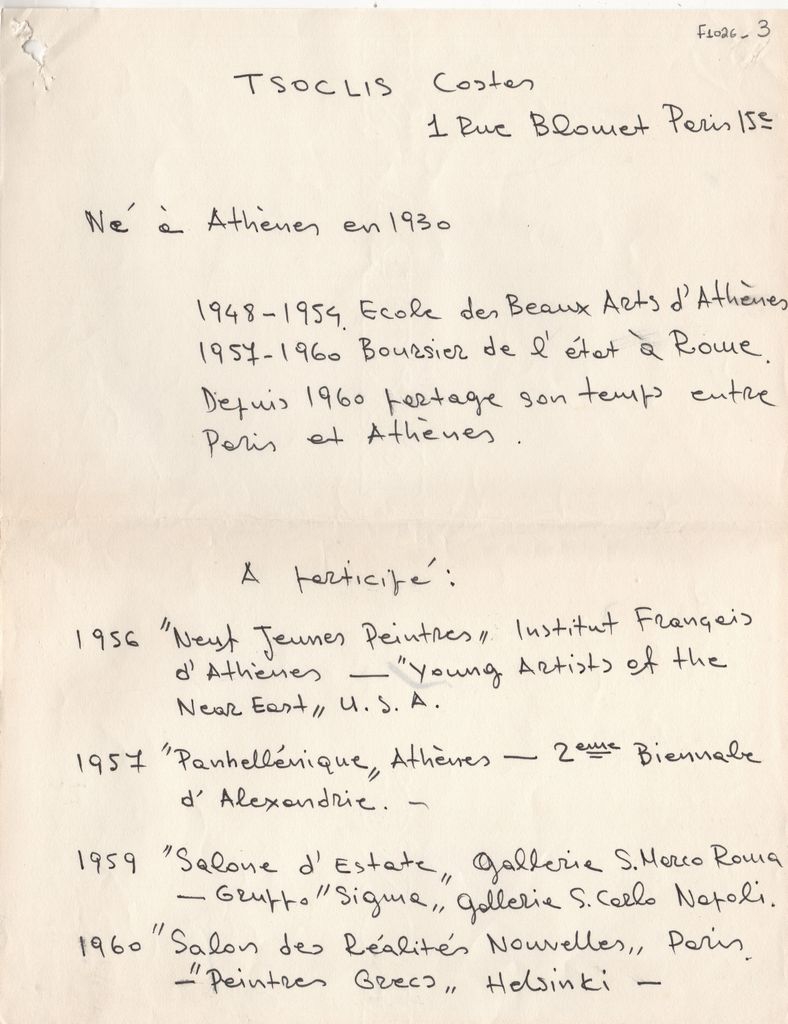 F1026-3
TSOCLIS Costas
1 Rue Blomet Paris 15e
Né à Athènes en 1930
1948-1954. Ecole des Beaux Arts d'Athènes
1957-1960 Boursier de l'état à Rome.
Depuis 1960 partage son temps entre
Paris et Athènes.
A participé:
1956 "Neuf Jeunes Peintres" Institut Français
d'Athènes — "Young Artists of the
Near East" U.S.A.
1957 "Panhellénique" Athènes — 2eme Biennale
d'Alexandrie. -
1959 "Salone d'Estate" Gallerie S. Marco Roma
— Gruppo "Sigma" gallerie S. Carlo Napoli.
1960 "Salon des Réalités Nouvelles" Paris.
- "Peintres Grecs" Helsinki -